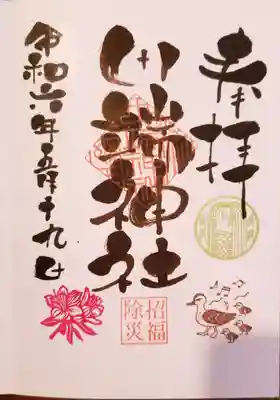 奉拝
川端神社
招福
除災
令和六年五月十九日